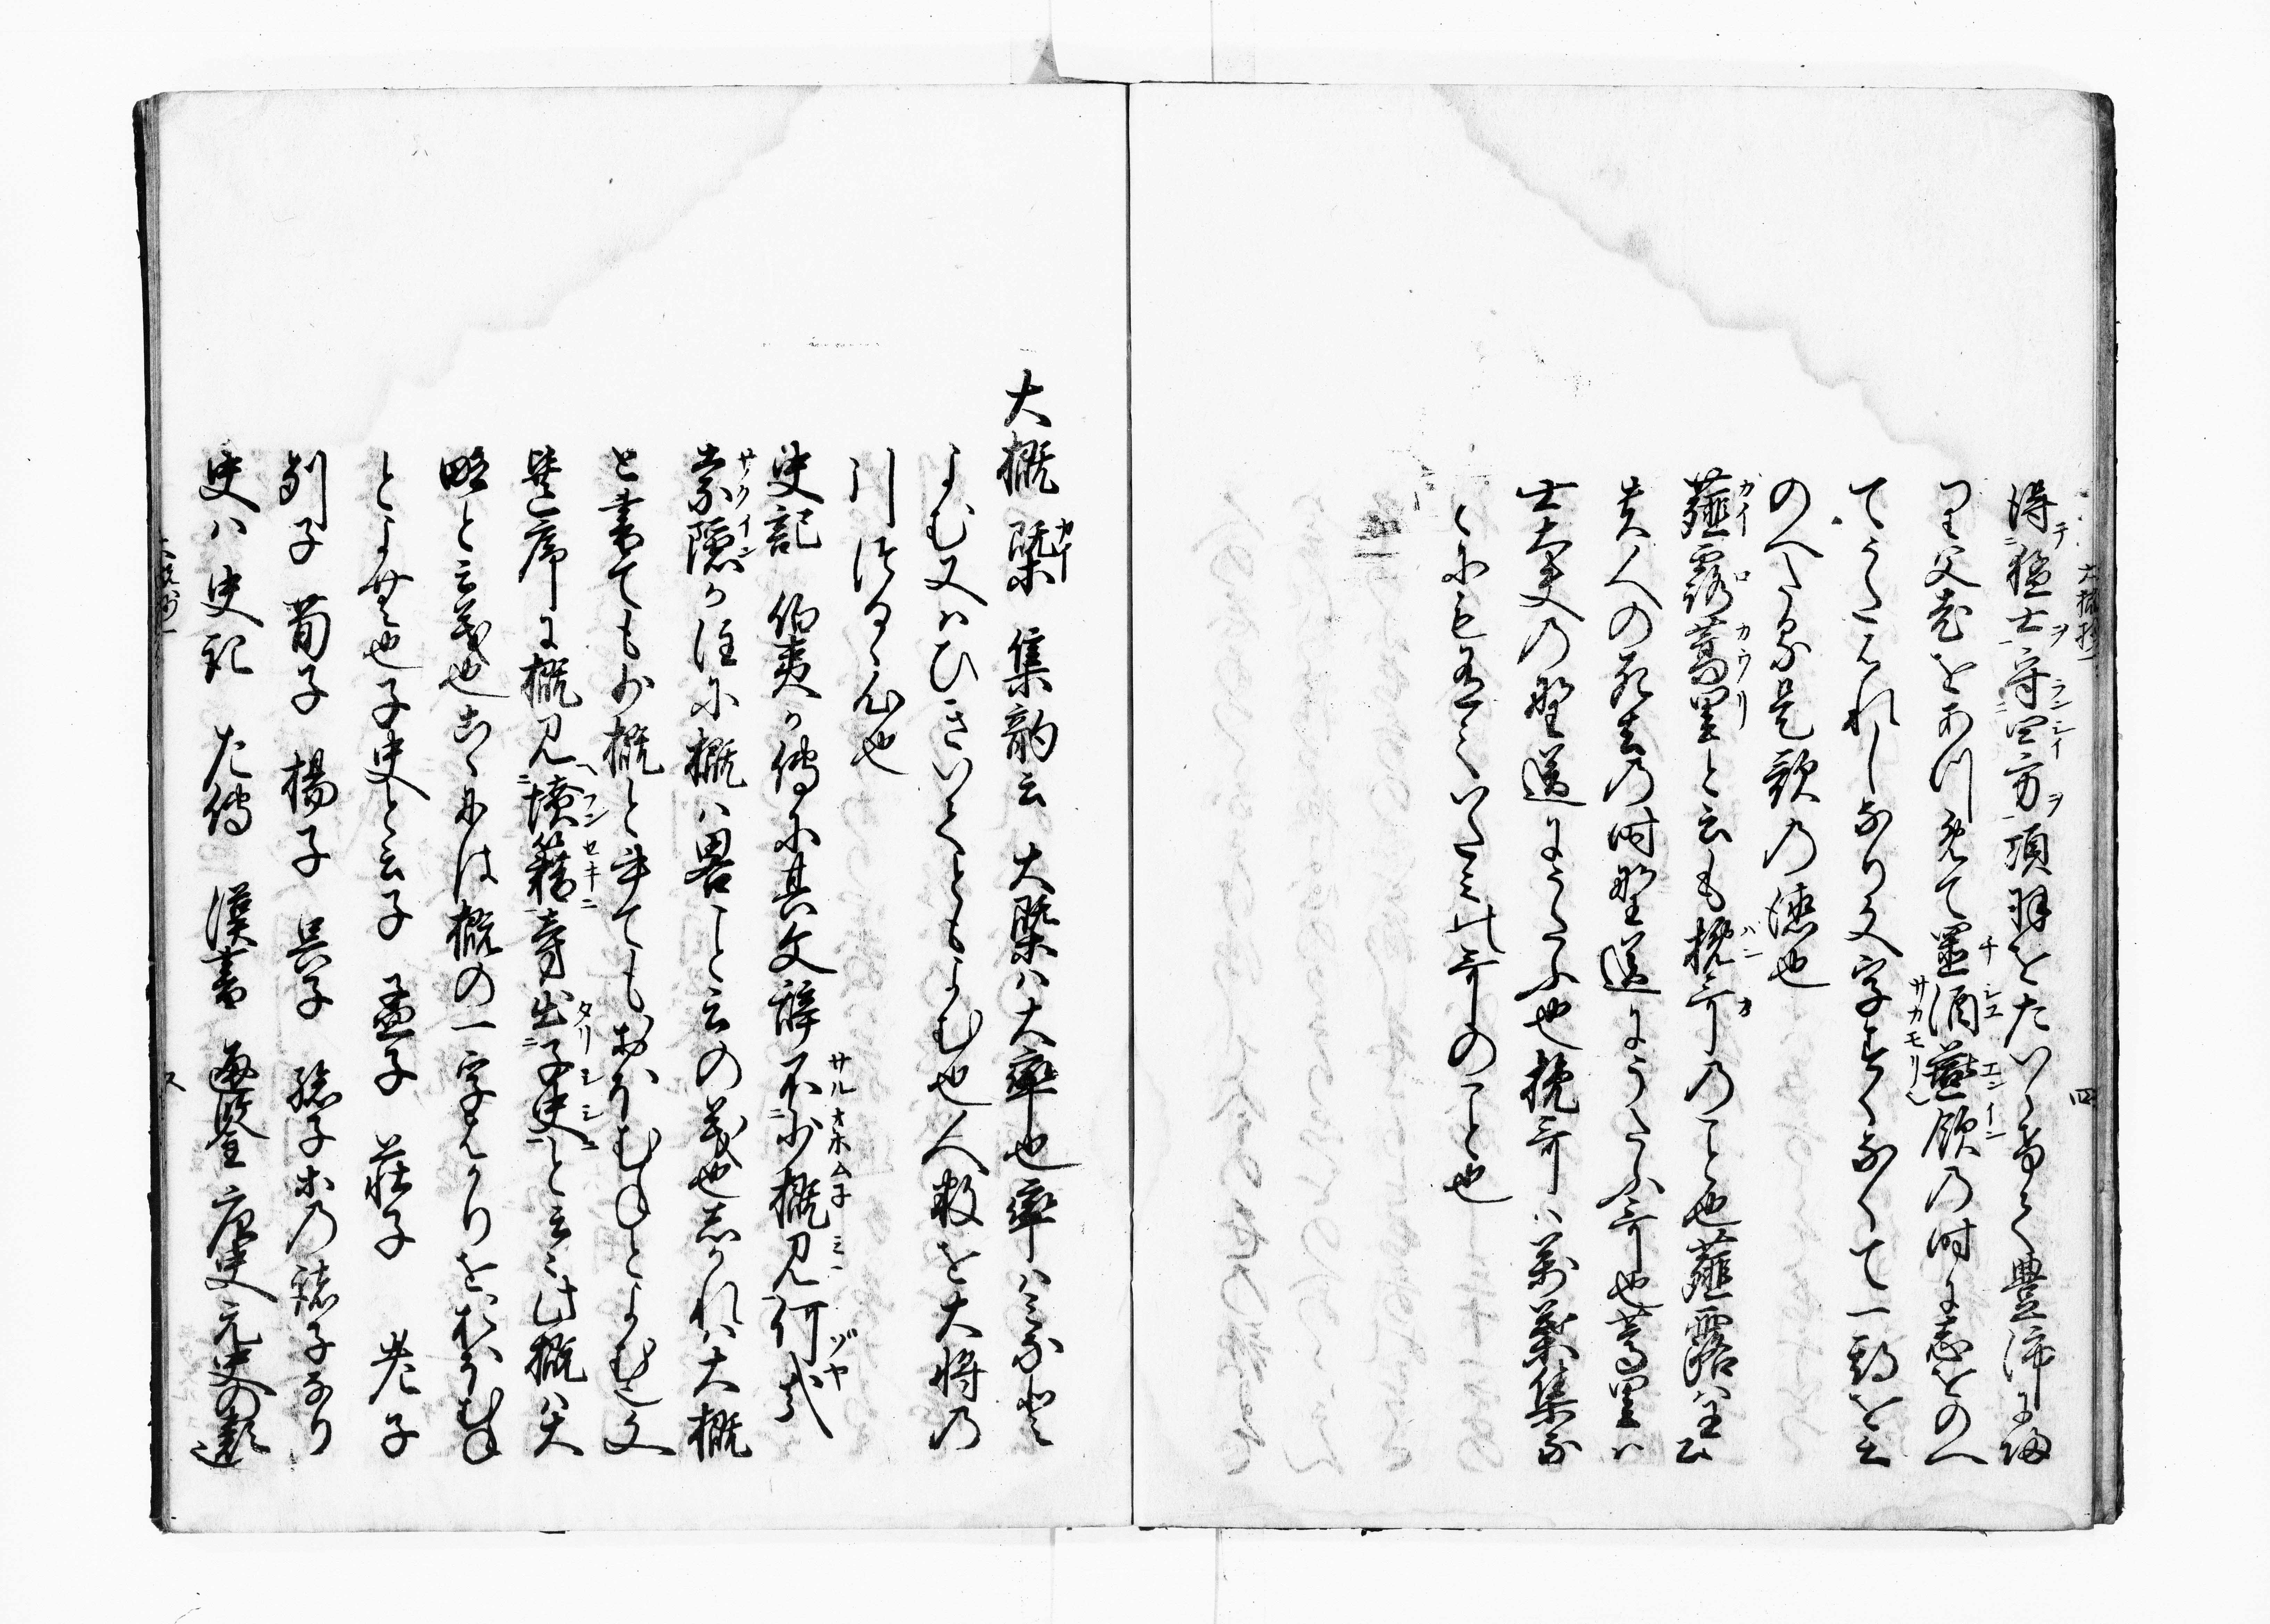 大概抄一
四
得テ猛士ヲ守ンシイ四方ヲ項羽をたいらけて豊沛に帰
り父老をあつめて置酒燕飲の時に志をのへ
てうたはれしなり文字すくなくて一動を云
のへたる是歌の濃也
薤露蒿里と云も挽哥のこと也薤露は王公
貴人の死去の時野邊にうたふ哥也蒿里ハ
士大夫の野邊にうたふ也挽哥ハ万葉集な
とにも有之いたミ哥のこと也
大概 槩 集韵云 大槩ハ大率也率ハミなと
よむ又ハひきいてともよむ也人数を大将の
引つるゝ心也
史記 伯夷か傳に其文辞不少概見何哉
索隠か注に概ハ畧こと云の義也志かれハ大概
と書ても少概と書てもおほむねとよむ之文
選序に概見墳籍旁出子史と云ミ此概ハ大
略と云義也こゝには概の一字はかりをおほむね
とよませ也子史と云子 孟子 荘子 老子
列子 荀子 楊子 呉子 孫子ホの諸子なり
史ハ史記 左傳 漢書 通鑑 唐史元史の類